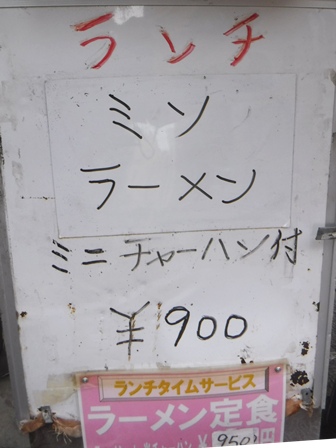 ランチ
ミソ
ラーメン
ミニチャーハン付
¥900
ランチタイムサービス
ラーメン定食
¥950円